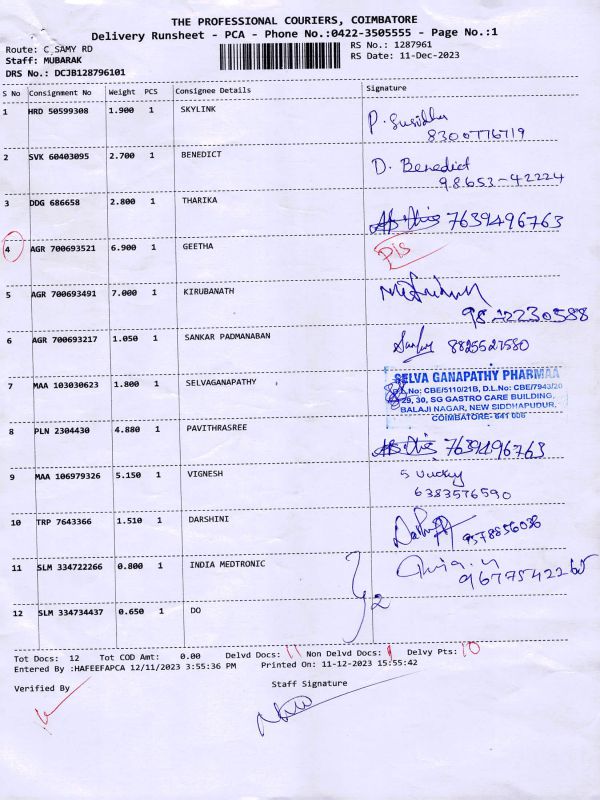 THE PROFESSIONAL COURIERS, COIMBATORE
Delivery Runsheet - PCA - Phone No.:0422-3505555 - Page No.:1
Route: C_SAMY RD
RS No.: 1287961
Staff: MUBARAK
RS Date: 11-Dec-2023
DRS No.: DCJB128796101
S No Consignment No Weight PCS Consignee Details Signature
1 HRD 50599308 1.900 1 SKYLINK
8300776719
2 SVK 60403095 2.700 1 BENEDICT D. Benedict
98653-42224
3 DDG 686658 2.800 1 THARIKA 7639496763
4 AGR 700693521 6.900 1 GEETHA
5 AGR 700693491 7.000 1 KIRUBANATH
6 AGR 700693217 1.050 1 SANKAR PADMANABAN 8825527580
7 MAA 103030623 1.800 1 SELVAGANAPATHY SELVA GANAPATHY PHARMAA
D.L.No: CBE/5110/21B, D.L.No: CBE/7943/20
29, 30, SG GASTRO CARE BUILDING,
BALAJI NAGAR, NEW SIDDHAPUDUR,
COIMBATORE- 641 006
8 PLN 2304430 4.880 1 PAVITHRASREE 7639496763
9 MAA 106979326 5.150 1 VIGNESH
6383576590
10 TRP 7643366 1.510 1 DARSHINI 9578856036
11 SLM 334722266 0.800 1 INDIA MEDTRONIC
12 SLM 334734437 0.650 1 DO 2
Tot Docs: 12 Tot COD Amt: 0.00 Delvd Docs: 11 Non Delvd Docs: Delvy Pts: 10
Entered By :HAFEEFAPCA 12/11/2023 3:55:36 PM Printed On: 11-12-2023 15:55:42
Verified By Staff Signature